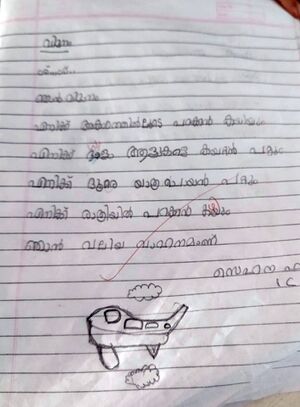 വിമാനം
ഞാൻ വിമാനം
എനിക്ക് ആകാശത്തിലൂടെ പറക്കാൻ കഴിയും
എനിക്ക് ആളുകളെ കയറ്റാൻ പറ്റും
എനിക്ക് ദൂരെ യാത്ര പോയാൻ പറ്റും
എനിക്ക് രാത്രിയിൽ പറക്കാൻ കഴിയും
ഞാൻ വലിയ വാഹനമാണ്
സെഹന
1 C